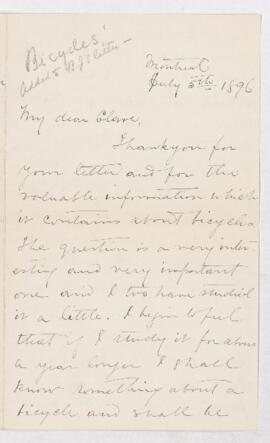 Bicycles!
Added to B.J's letter -
Montreal
July 5th 1896
My dear Clare,
Thank you for
your letter and for the
valuable information which
it contains about bicycles
The question is a very inter
esting and very important
one and I too have studied
it a little. I begin to feel
that if I study it for about
a year longer I shall
know something about a
bicycle and shall be